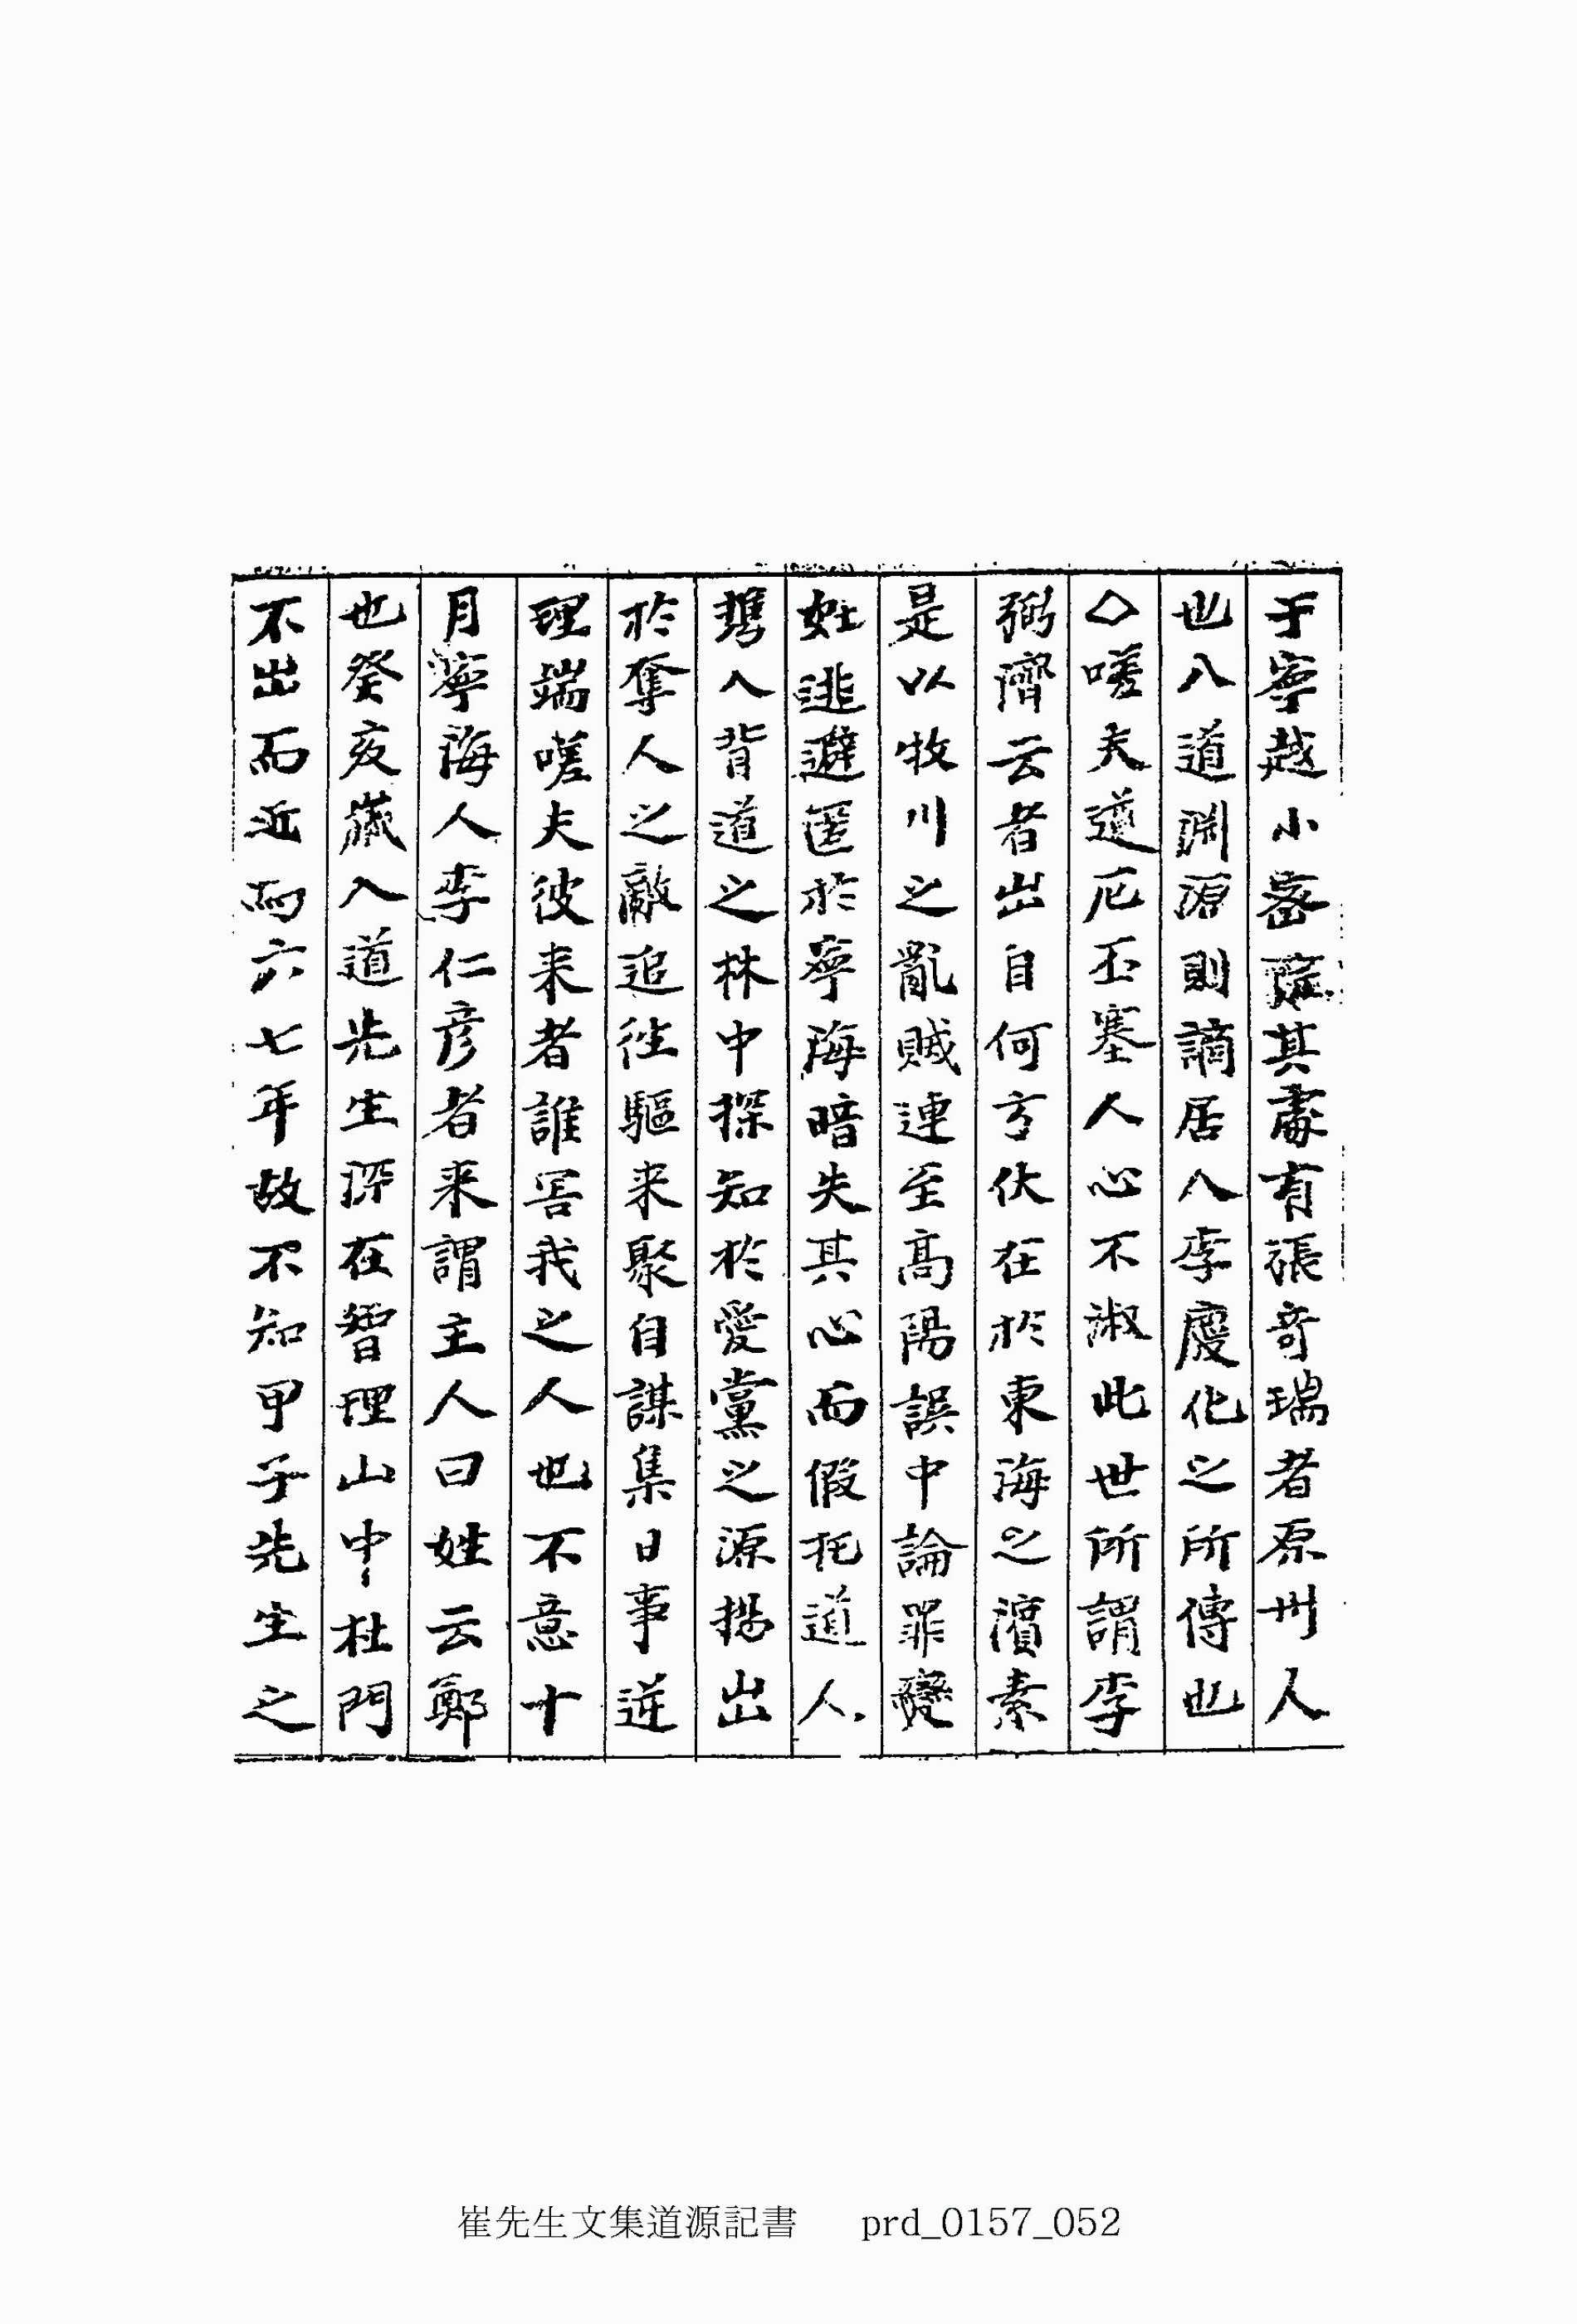 于寧越小密院其處有張奇瑞者原州人
也入道渊源則謫居人李慶化之所傳也
◇嗟夫道厄丕塞人心不淑此世所謂李
弼濟云者出自何方伏在於東海之濱素
是以牧川之亂賊連至高陽誤中論罪變
姓逃避匿於寧海暗失其心而假托道人
携入背道之林中探知於愛黨之源拐出
於奪人之敵追往驅来聚自謀集日事逆
理端嗟夫彼来者誰害我之人也不意十
月寧海人李仁彦者来謂主人曰姓云鄭
也癸亥歲入道先生深在智理山中杜門
不出而近而六七年故不知甲子先生之
崔先生文集道源記書 prd_0157_052